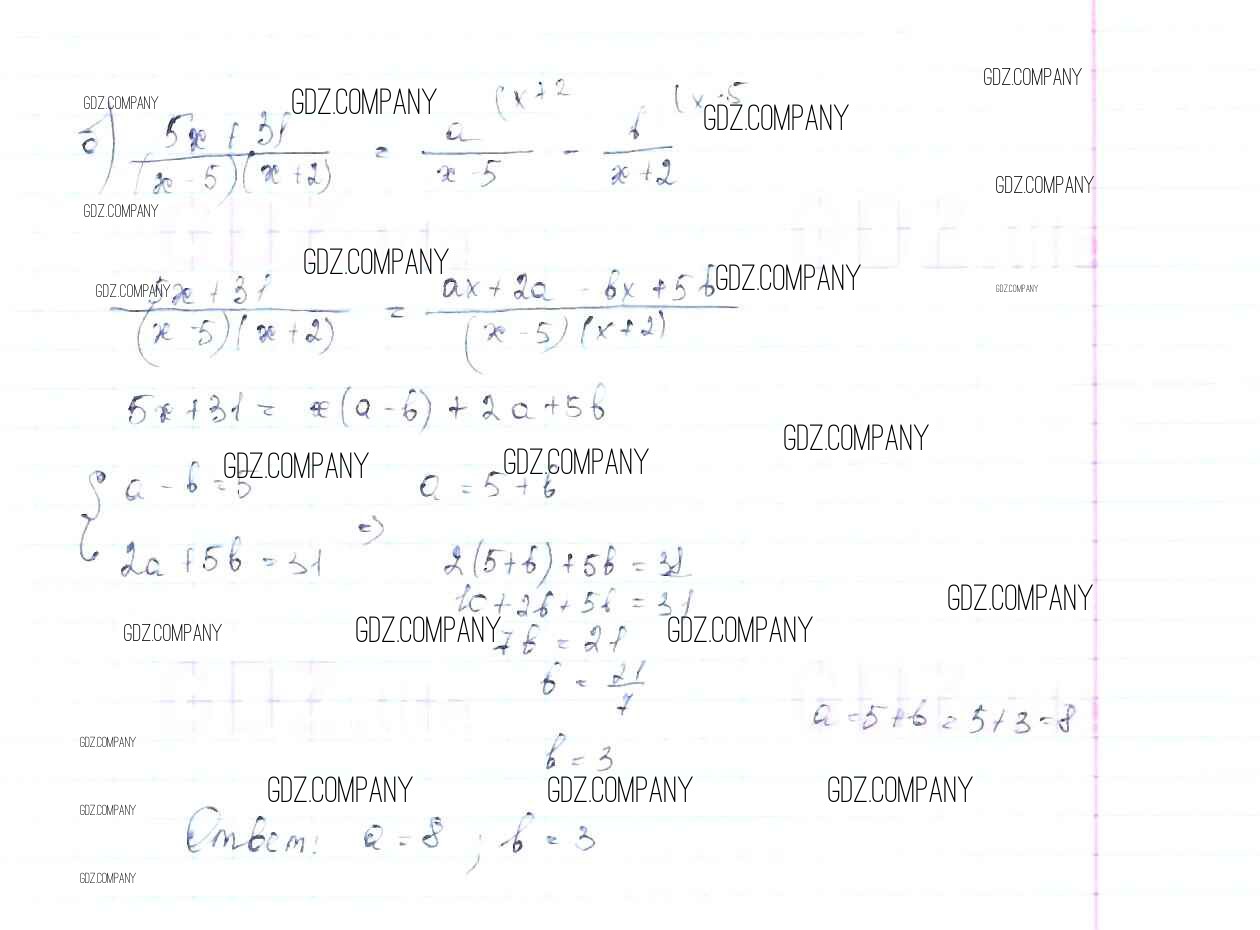 GDZ.COMPANY GDZ.COMPANY (x+2 (x-5 GDZ.COMPANY GDZ.COMPANY
б) (5x + 31)/((x-5)(x+2)) = a/(x-5) - b/(x+2)
GDZ.COMPANY GDZ.COMPANY
GDZ.COMPANY GDZ.COMPANY GDZ.COMPANY GDZ.COMPANY
(5x + 31)/((x-5)(x+2)) = (ax + 2a - bx + 5b)/((x-5)(x+2))
5x + 31 = x(a-b) + 2a + 5b
GDZ.COMPANY GDZ.COMPANY GDZ.COMPANY
{ a - b = 5 a = 5 + b
=>
2a + 5b = 31 2(5+b) + 5b = 31
10 + 2b + 5b = 31 GDZ.COMPANY
GDZ.COMPANY GDZ.COMPANY 7b = 21 GDZ.COMPANY
b = 21/7
a = 5 + b = 5 + 3 = 8
GDZ.COMPANY b = 3
GDZ.COMPANY GDZ.COMPANY GDZ.COMPANY
GDZ.COMPANY
Ответ: a = 8 ; b = 3
GDZ.COMPANY